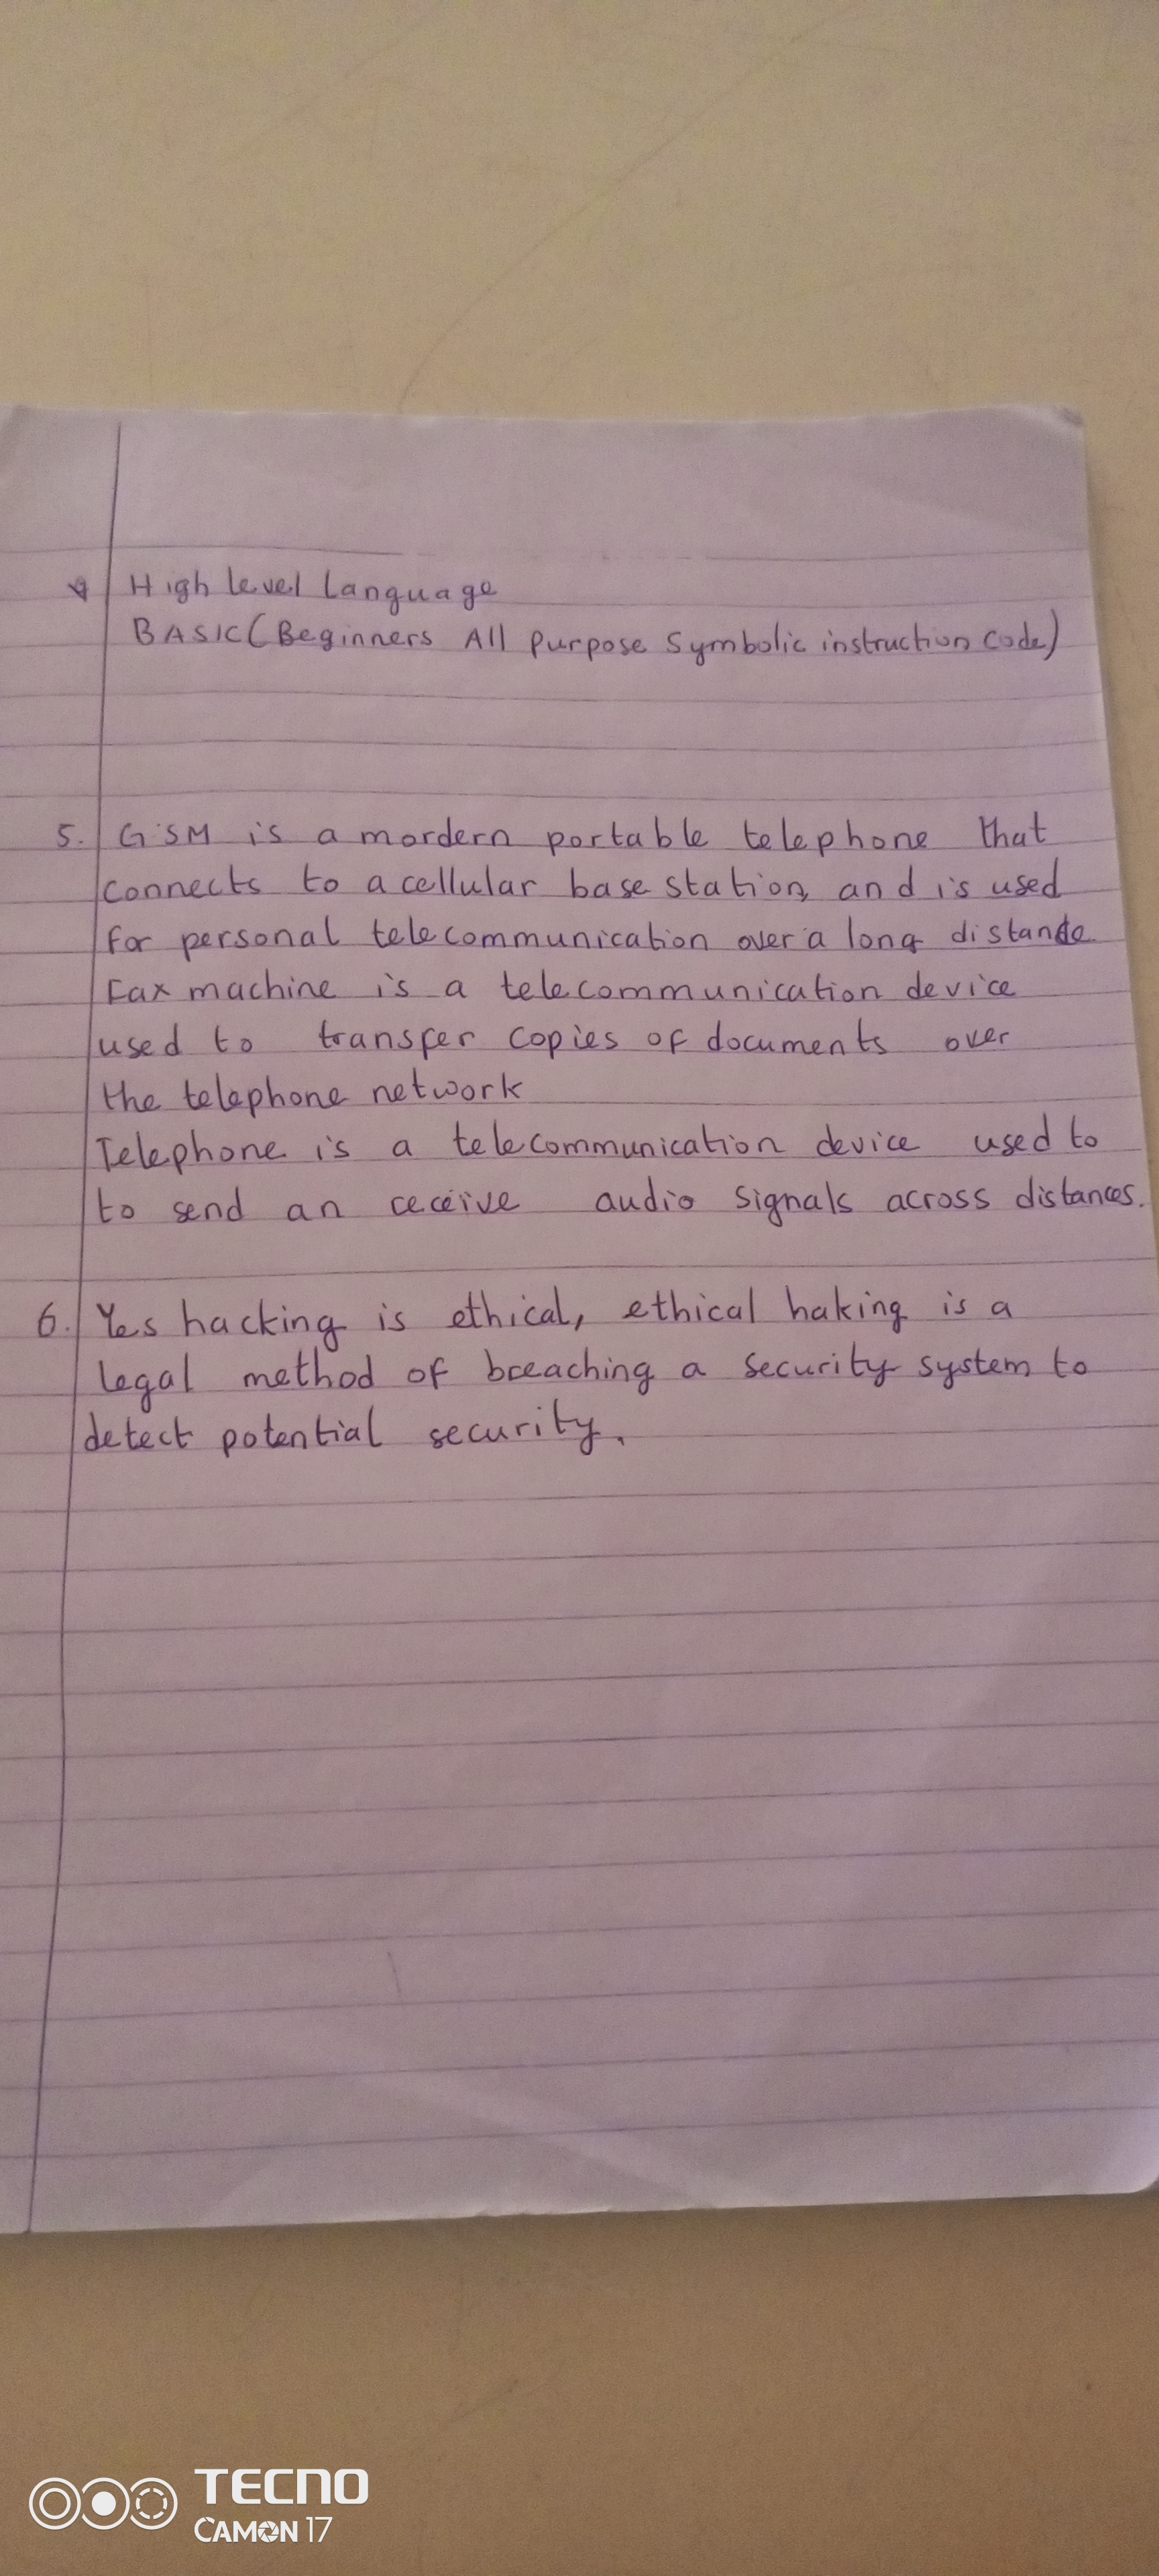 High level language
BASIC (Beginners All purpose Symbolic instruction code)
5. GSM is a mordern portable telephone that
connects to a cellular base station, and is used
for personal telecommunication over a long distance.
Fax machine is a telecommunication device
used to transfer copies of documents over
the telephone network
Telephone is a telecommunication device used to
to send an receive audio signals across distances.
6. Yes hacking is ethical, ethical haking is a
legal method of breaching a security system to
detect potential security.
TECNO
CAMON 17